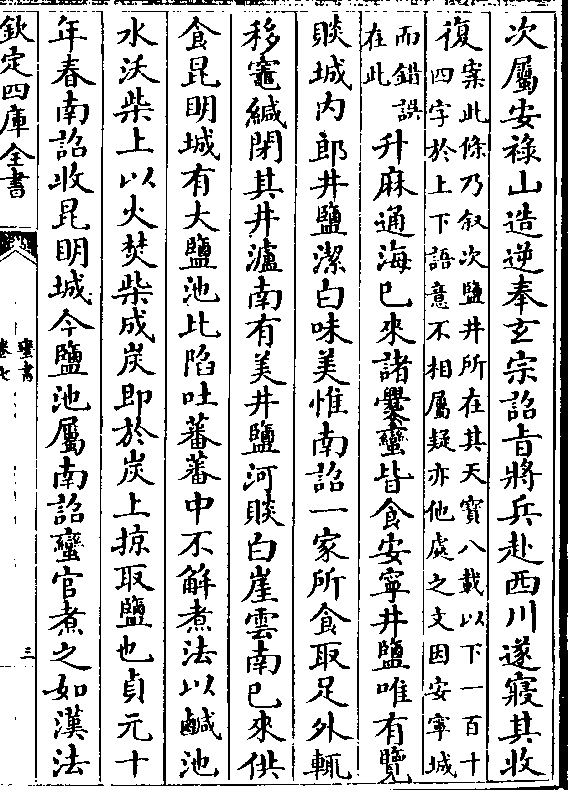 次屬安祿山造逆奉玄宗詔旨將兵赴西川遂寢其收
復案此條乃叙次鹽井所在其天寳八載以下一百十
四字於上下語意不相屬疑亦他處之文因安寧城
而錯誤
在此升麻通海已來諸爨蠻皆食安寧井鹽唯有覽
賧城内郎井鹽潔白味美惟南詔一家所食取足外輒
移竈緘閉其井瀘南有美井鹽河賧白崖雲南已來供
食昆明城有大鹽池比陷吐蕃蕃中不解煮法以鹹池
水沃柴上以火焚柴成炭即於炭上掠取鹽也貞元十
年春南詔收昆明城今鹽池屬南詔蠻官煮之如漢法
欽定四庫全書
蠻書
卷七
三